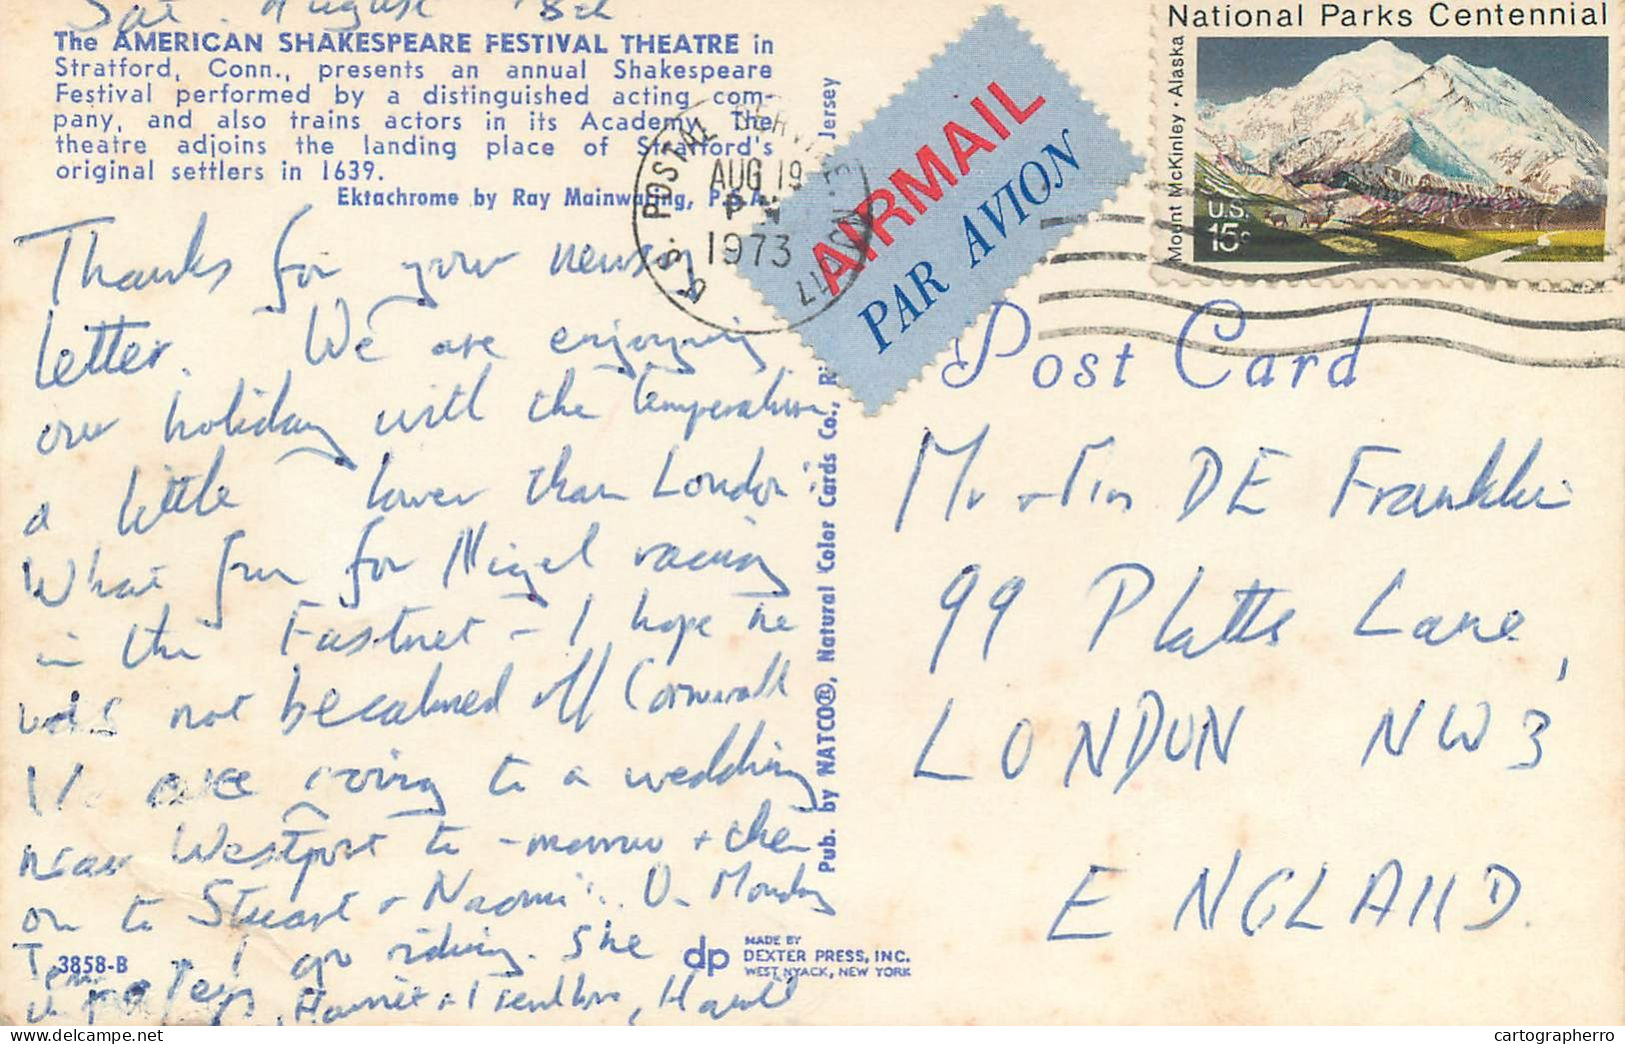 Sat. August 18th
The AMERICAN SHAKESPEARE FESTIVAL THEATRE in
Stratford, Conn., presents an annual Shakespeare
Festival performed by a distinguished acting com-
pany, and also trains actors in its Academy. The
theatre adjoins the landing place of Stratford's
original settlers in 1639.
Ektachrome by Ray Mainwaring, P.S.A.
Thanks for your newsy
letter. We are enjoying
our holiday with the temperature
a little lower than London
What fun for Nigel racing
in the Fastnet - I hope he
was not becalmed off Cornwall
We are going to a wedding
near Westport to-morrow + then
on to Stuart + Naomi's. On Monday
I go riding. She
Harriet +
3858-B
Pub. by NATCO®, Natural Color Cards Co., Jersey
dp
MADE BY
DEXTER PRESS, INC.
WEST NYACK, NEW YORK
U.S. POSTAL SERVICE
AUG 19
PM
1973
AIRMAIL
PAR AVION
National Parks Centennial
Mount McKinley · Alaska
U.S.
15c
Post Card
Mr + Mrs DE Franklin
99 Platts Lane,
LONDON NW3
ENGLAND.
cartographerro